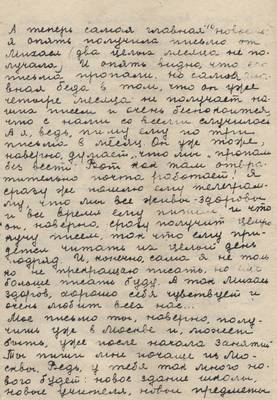 А теперь самая главная новость:
я опять получила письмо от
Михаси (два целых месяца не по-
лучала). И опять видно, что его
письма пропали, но самая глав-
ная беда в том, что он уже
четыре месяца не получает на-
ших писем и очень беспокоится,
что с нами со всеми случилось.
А я, ведь, пишу ему по три
письма в месяц. Он уж тоже,
наверно, думает, что мы пропали
без вести. Вот как там отвра-
тительно почта работает! Я
сразу же пошлю ему телеграм-
му, что мы все живы-здоровы
и все время ему пишем и что
он, наверно, сразу получит целую
кучу писем, так что ему при-
дется читать их целый день
подряд. И, конечно, сама я не толь-
ко не прекращаю писать, но еще
больше писать буду. А так Михась
здоров, хорошо себя чувствует и
очень любит всех нас...
Мое письмо ты, наверно, полу-
чишь уже в Москве и, может
быть, уже после начала занятий.
Ты пиши мне почаще из Мо-
сквы. Ведь, у тебя так много но-
вого будет: новое здание школы,
новые учителя, новые предметы